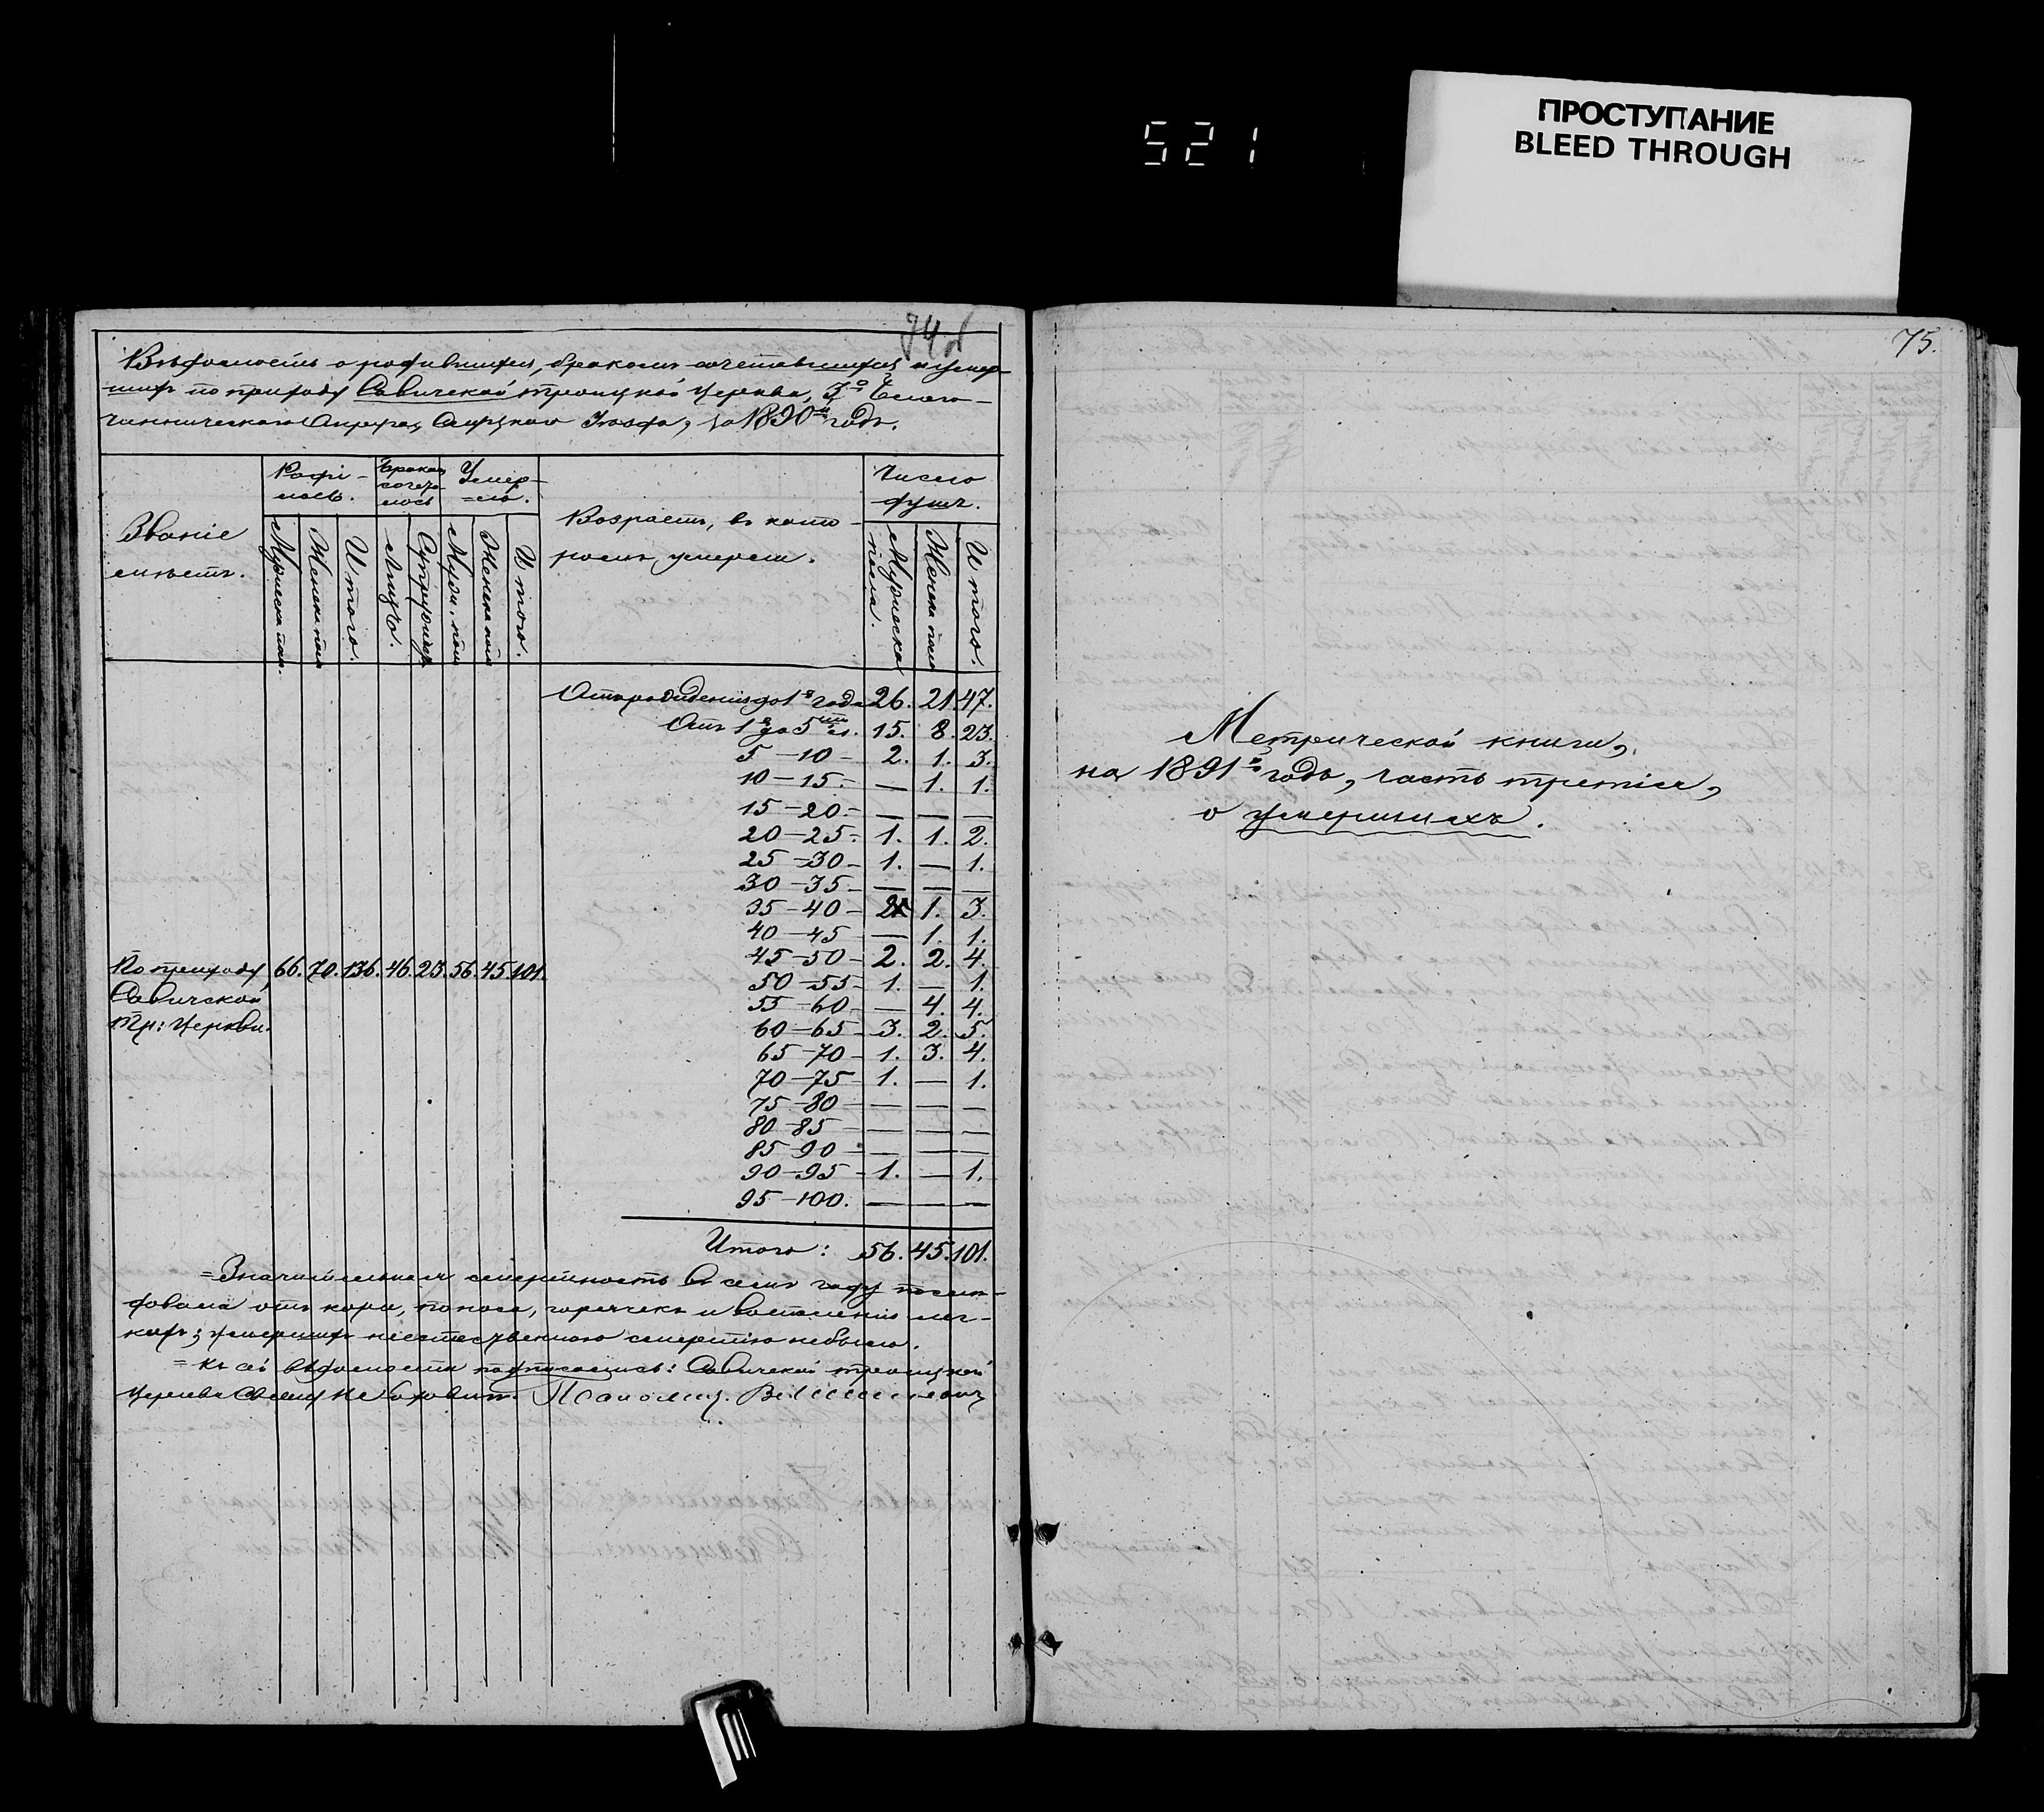 521
ПРОСТУПАНИЕ
BLEED THROUGH
74
Вѣдомость о родившихся, бракомъ сочетавшихся и умер-
шихъ по приходу Савичской троицкой церкви, 3го Благо-
чинническаго Округа, Слуцкаго Уѣзда, за 1890й годъ.
Званіе
мѣстъ.
Роди-
лось.
Бракомъ
сочета-
лось
Умер-
=ло.
Возрастъ, въ кото-
ромъ умерли.
Число
душъ.
Мужеска пола.
Женска пола
Итого.
Лицъ.
Супружествъ
Муж. пола
Женска пола
Итого.
Мужеска пола.
Женска пола
Итого.
Отъ рожденія до 1го года 26. 21. 47.
Отъ 1го до 5ти л. 15. 8. 23.
5 — 10 — 2. 1. 3.
10 — 15. — 1. 1.
15 — 20. — — —
20 — 25. 1. 1. 2.
25 — 30 — 1. — 1.
30 — 35 — — — —
35 — 40 — 2 1. 3.
40 — 45 — 1. 1.
45 — 50 — 2. 2. 4.
50 — 55 — 1. — 1.
55 — 60 — 4. 4.
60 — 65 — 3. 2. 5.
65 — 70 — 1. 3. 4.
70 — 75 1. — 1.
75 — 80 — — —
80 — 85 — — —
85 — 90 — — —
90 — 95 — 1. — 1.
95 — 100. — — —
По приходу 66. 70. 136. 46. 23. 56. 45. 101.
Савичской
Тр: церкви.
Итого: 56. 45. 101.
=Значительная смертность въ семъ году послѣ-
довала отъ кори, поноса, горячекъ и воспаленія лег-
кихъ; умершихъ неестественною смертію не было.
= Къ сей вѣдомости подписались: Савичской троицкой
церкви Священникъ
75.
Метрической книги,
на 1891й годъ, часть третія,
о умершихъ.